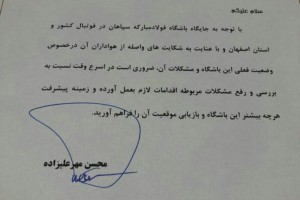 سلام علیکم
با توجه به جایگاه باشگاه فولادمبارکه سپاهان در فوتبال کشور و
استان اصفهان و با عنایت به شکایت های واصله از هواداران آن درخصوص
وضعیت فعلی این باشگاه و مشکلات آن، ضروری است در اسرع وقت نسبت به
بررسی و رفع مشکلات مربوطه اقدامات لازم بعمل آورده و زمینه پیشرفت
هرچه بیشتر این باشگاه و بازیابی موقعیت آن را فراهم آورید.
محسن مهرعلیزاده